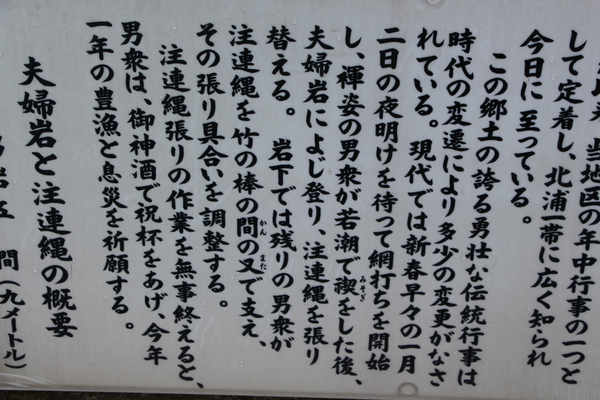 当地区の年中行事の一つと
して定着し、北浦一帯に広く知られ
今日に至っている。
この郷土の誇る勇壮な伝統行事は
時代の変遷により多少の変更がなさ
れている。現代では新春早々の一月
二日の夜明けを待って網打ちを開始
し、褌姿の男衆が若潮で禊をした後、
みそぎ
夫婦岩によじ登り、注連縄を張り
替える。 岩下では残りの男衆が
注連縄を竹の棒の間の又で支え、
かん また
その張り具合いを調整する。
注連縄張りの作業を無事終えると、
男衆は、御神酒で祝杯をあげ、今年
一年の豊漁と息災を祈願する。
夫婦岩と注連縄の概要
岩 五 間(九メートル)